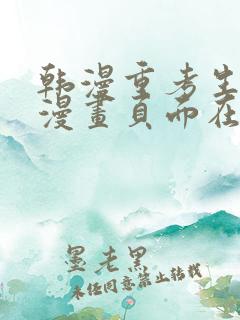 韩漫重考生
漫畫頁而在
墨老黑
未经同意禁止转载